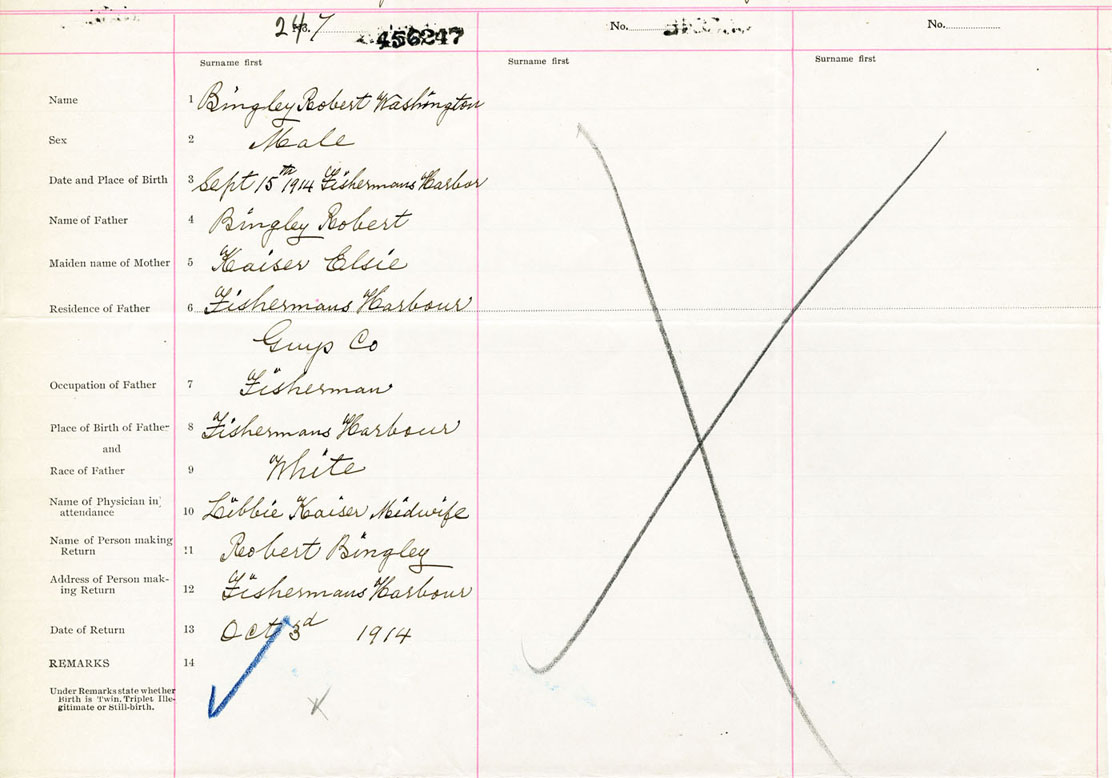 No. 247 456247
No.
No.
Surname first
Surname first
Surname first
Name 1 Bingley Robert Washington
Sex 2 Male
Date and Place of Birth 3 Sept 15th 1914 Fishermans Harbor
Name of Father 4 Bingley Robert
Maiden name of Mother 5 Kaiser Elsie
Residence of Father 6 Fishermans Harbour
Guys Co
Occupation of Father 7 Fisherman
Place of Birth of Father 8 Fishermans Harbour
and
Race of Father 9 White
Name of Physician in
attendance 10 Libbie Kaiser Midwife
Name of Person making
Return 11 Robert Bingley
Address of Person mak-
ing Return 12 Fishermans Harbour
Date of Return 13 Oct 3d 1914
REMARKS 14
Under Remarks state whether
Birth is Twin, Triplet Ille-
gitimate or Still-birth.